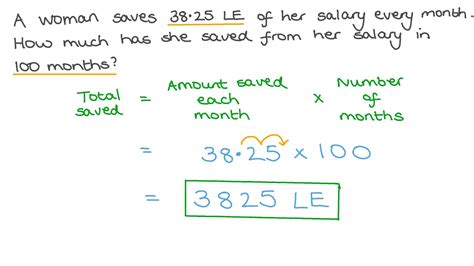 A woman saves 38·25 LE of her salary every month.
How much has she saved from her salary in
100 months?
Total saved = Amount saved each month × Number of months
= 38·25 × 100
= 3825 LE